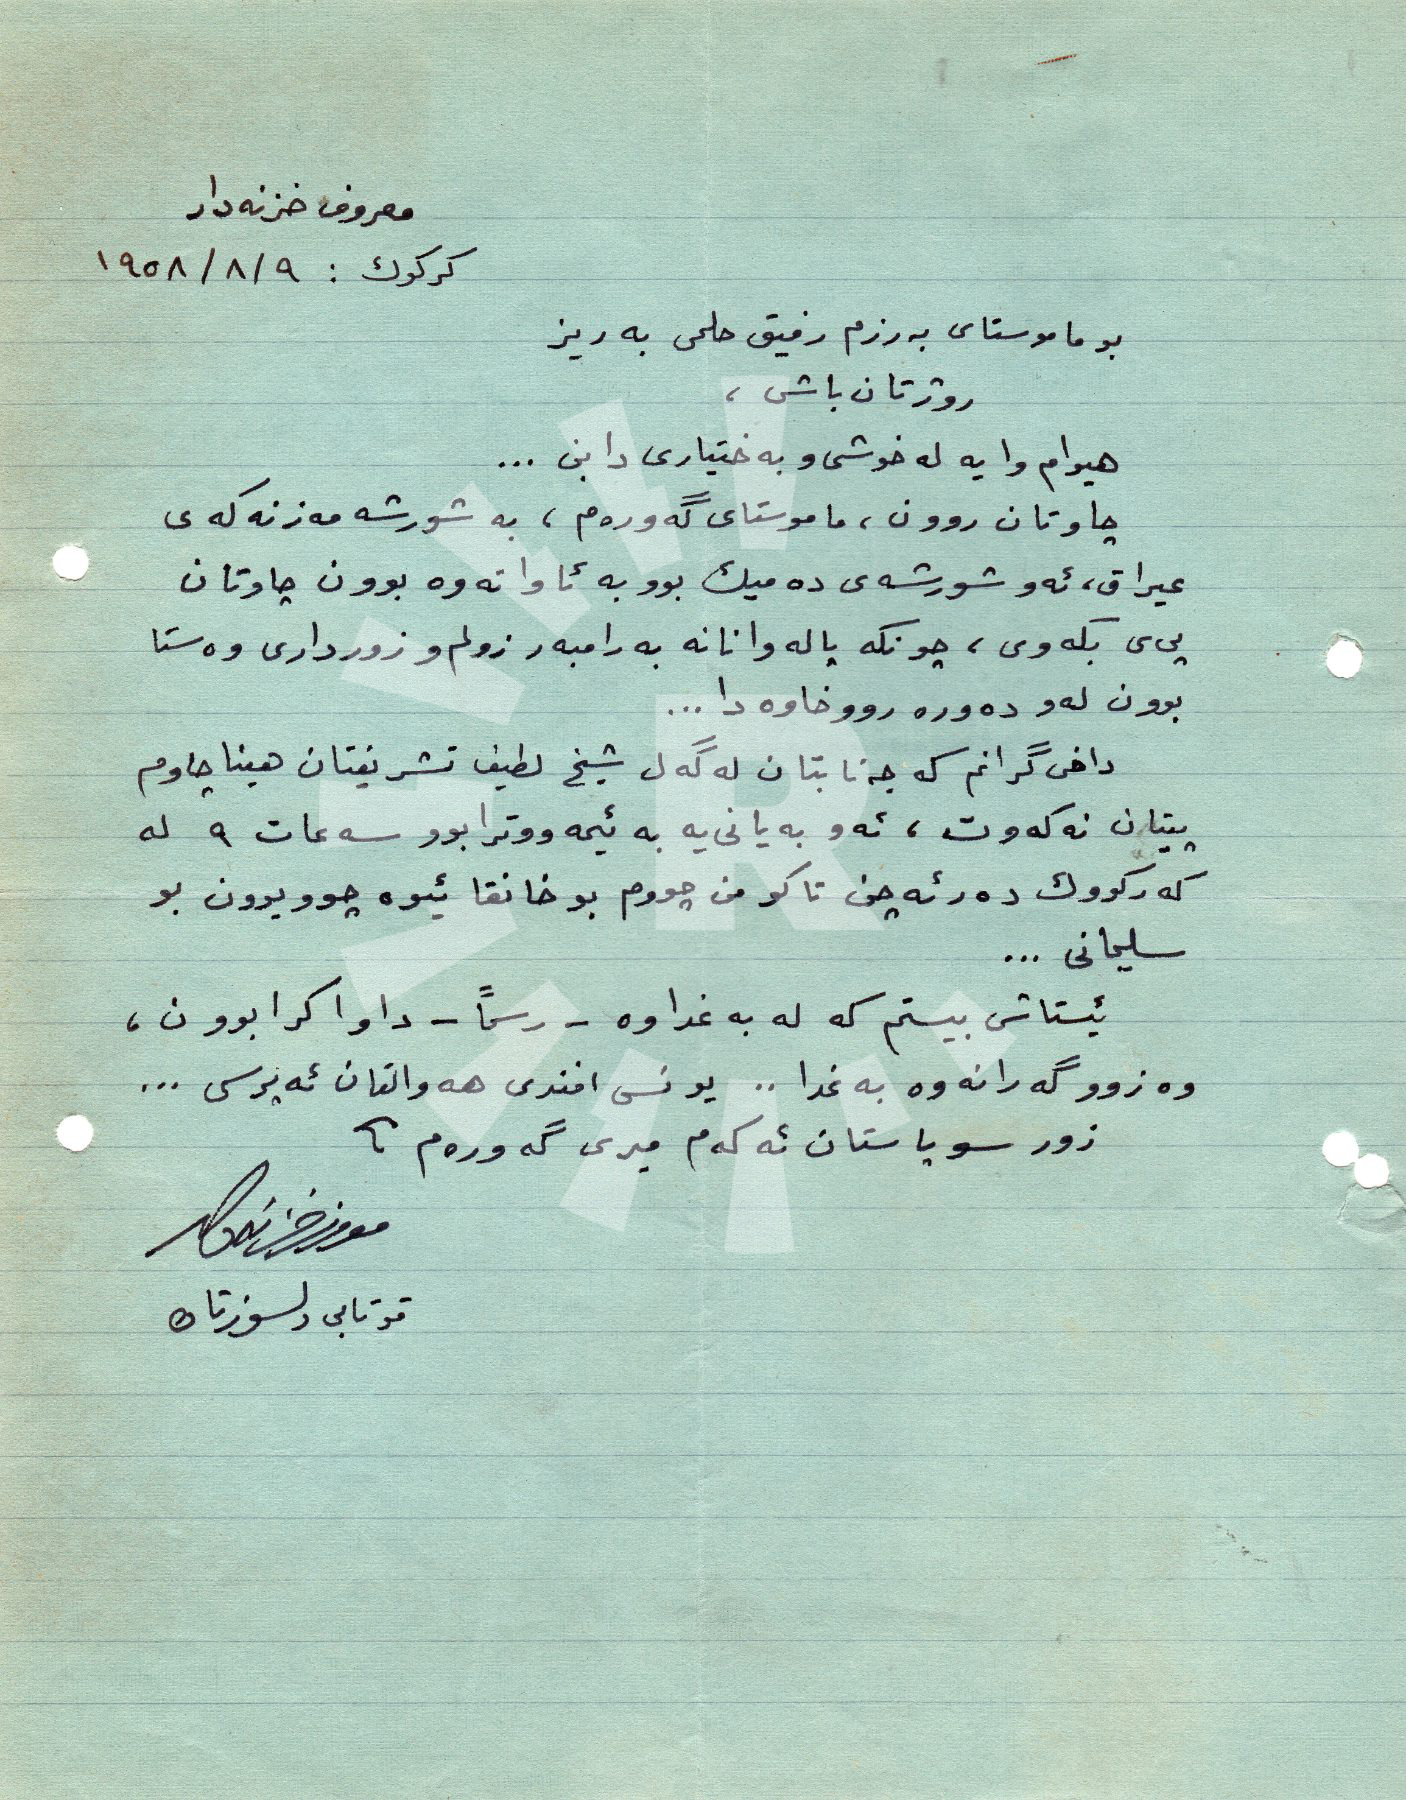 معروف خزنه‌دار
كركوك : ١٩٥٨/٨/٩
بو ماموستاى به‌رزم رفيق حلمى به‌ريز
روژتان باشى ،
هيوام وايه له خوشى و به‌ختيارى دابن ...
چاوتان روون ، ماموستاى گه‌وره‌م ، به شورشه مه‌زنه‌كه‌ى
عيراق، ئه‌و شورشه‌ى ده‌ميك بوو به ئاواته‌وه بوون چاوتان
پى‌ى بكه‌وى ، چونكه پاله‌وانانه به‌رامبه‌ر زولم و زوردارى وه‌ستا
بوون له‌و ده‌وره رووخاوه‌دا ...
داخى گرانم كه جه‌نابتان له‌گه‌ل شيخ لطيف تشريفتان هينا چاوم
پيتان نه‌كه‌وت ، ئه‌و به‌يانى‌يه به ئيمه ووترابوو سه‌عات ٩ له
كه‌ركووك ده‌رئه‌چن تاكو من چووم بو خانقا ئيوه چووبوون بو
سليمانى ...
ئيستاش بيستم كه له به‌غداوه - رسماً - داواكرابوون ،
وه زوو گه‌رانه‌وه به‌غدا .. يونس افندى هه‌والتان ئه‌پرسى ...
زور سوپاستان ئه‌كه‌م ميرى گه‌وره‌م
معروف خزنه‌دار
قوتابى دلسوزتان
R